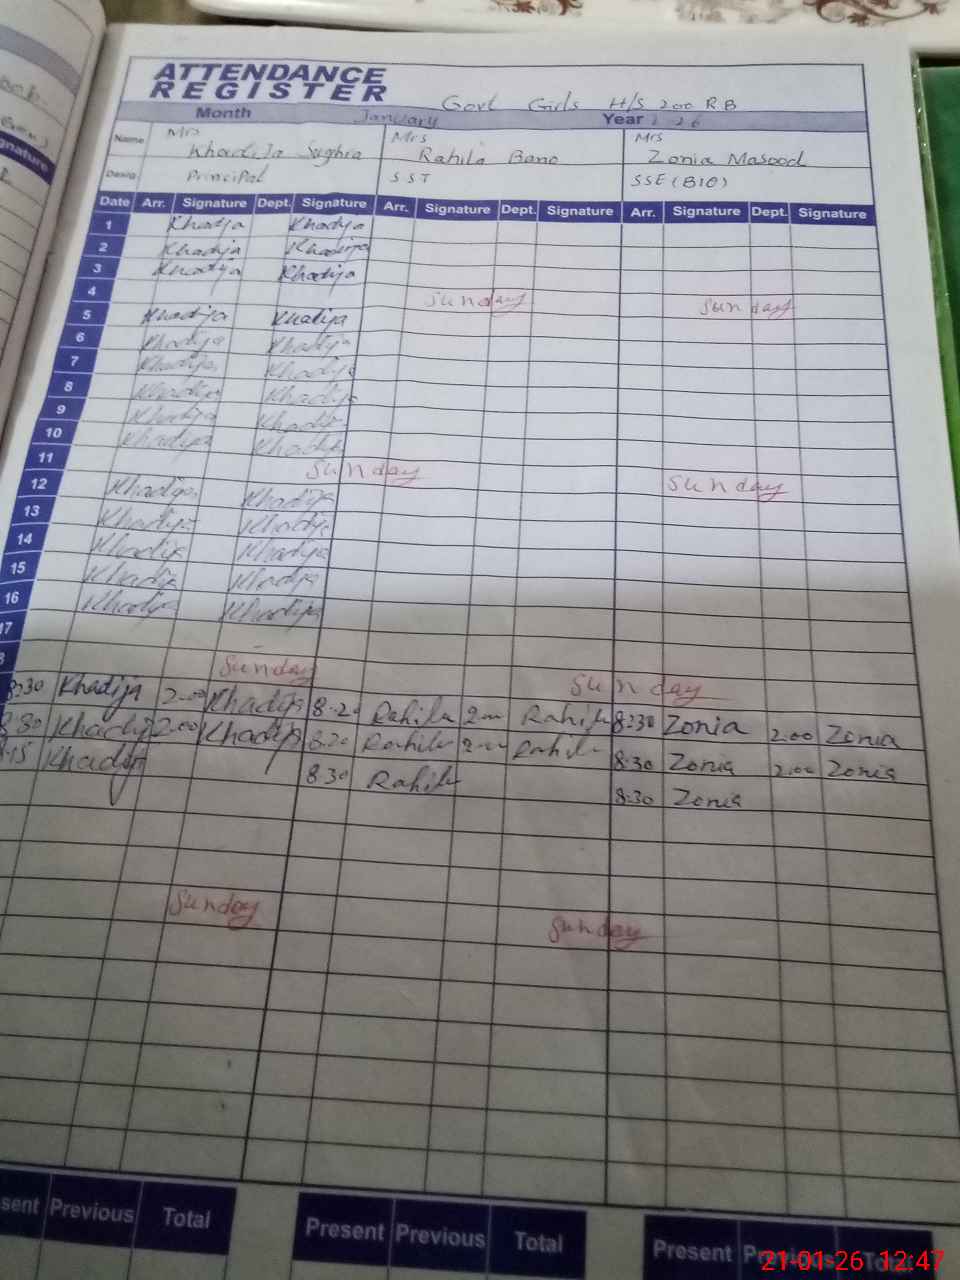 ATTENDANCE
REGISTER
Govt Girls H/S 200 RB
Month January Year
Name Mrs Khadija Sughra Mrs Rahila Bano Mrs Zonia Masood
Desig Principal SST SSE (BIO)
Date Arr. Signature Dept. Signature Arr. Signature Dept. Signature Arr. Signature Dept. Signature
1 Khadija Khadija
2 Khadija Khadija
3 Khadija Khadija
4 Sunday Sunday
5 Khadija Khadija
6 Khadija Khadija
7 Khadija Khadija
8 Khadija Khadija
9 Khadija Khadija
10 Khadija Khadija
11 Sunday Sunday
12 Khadija Khadija
13 Khadija Khadija
14 Khadija Khadija
15 Khadija Khadija
16 Khadija Khadija
17
Sunday Sunday
8:30 Khadija 2:00 Khadija 8:20 Rahila 2:00 Rahila 8:30 Zonia 2:00 Zonia
8:30 Khadija 2:00 Khadija 8:20 Rahila 2:00 Rahila 8:30 Zonia 2:00 Zonia
Khadija 8:30 Rahila 8:30 Zonia
Sunday Sunday
Previous Total Present Previous Total Present Previous Total
21-01-26 12:47